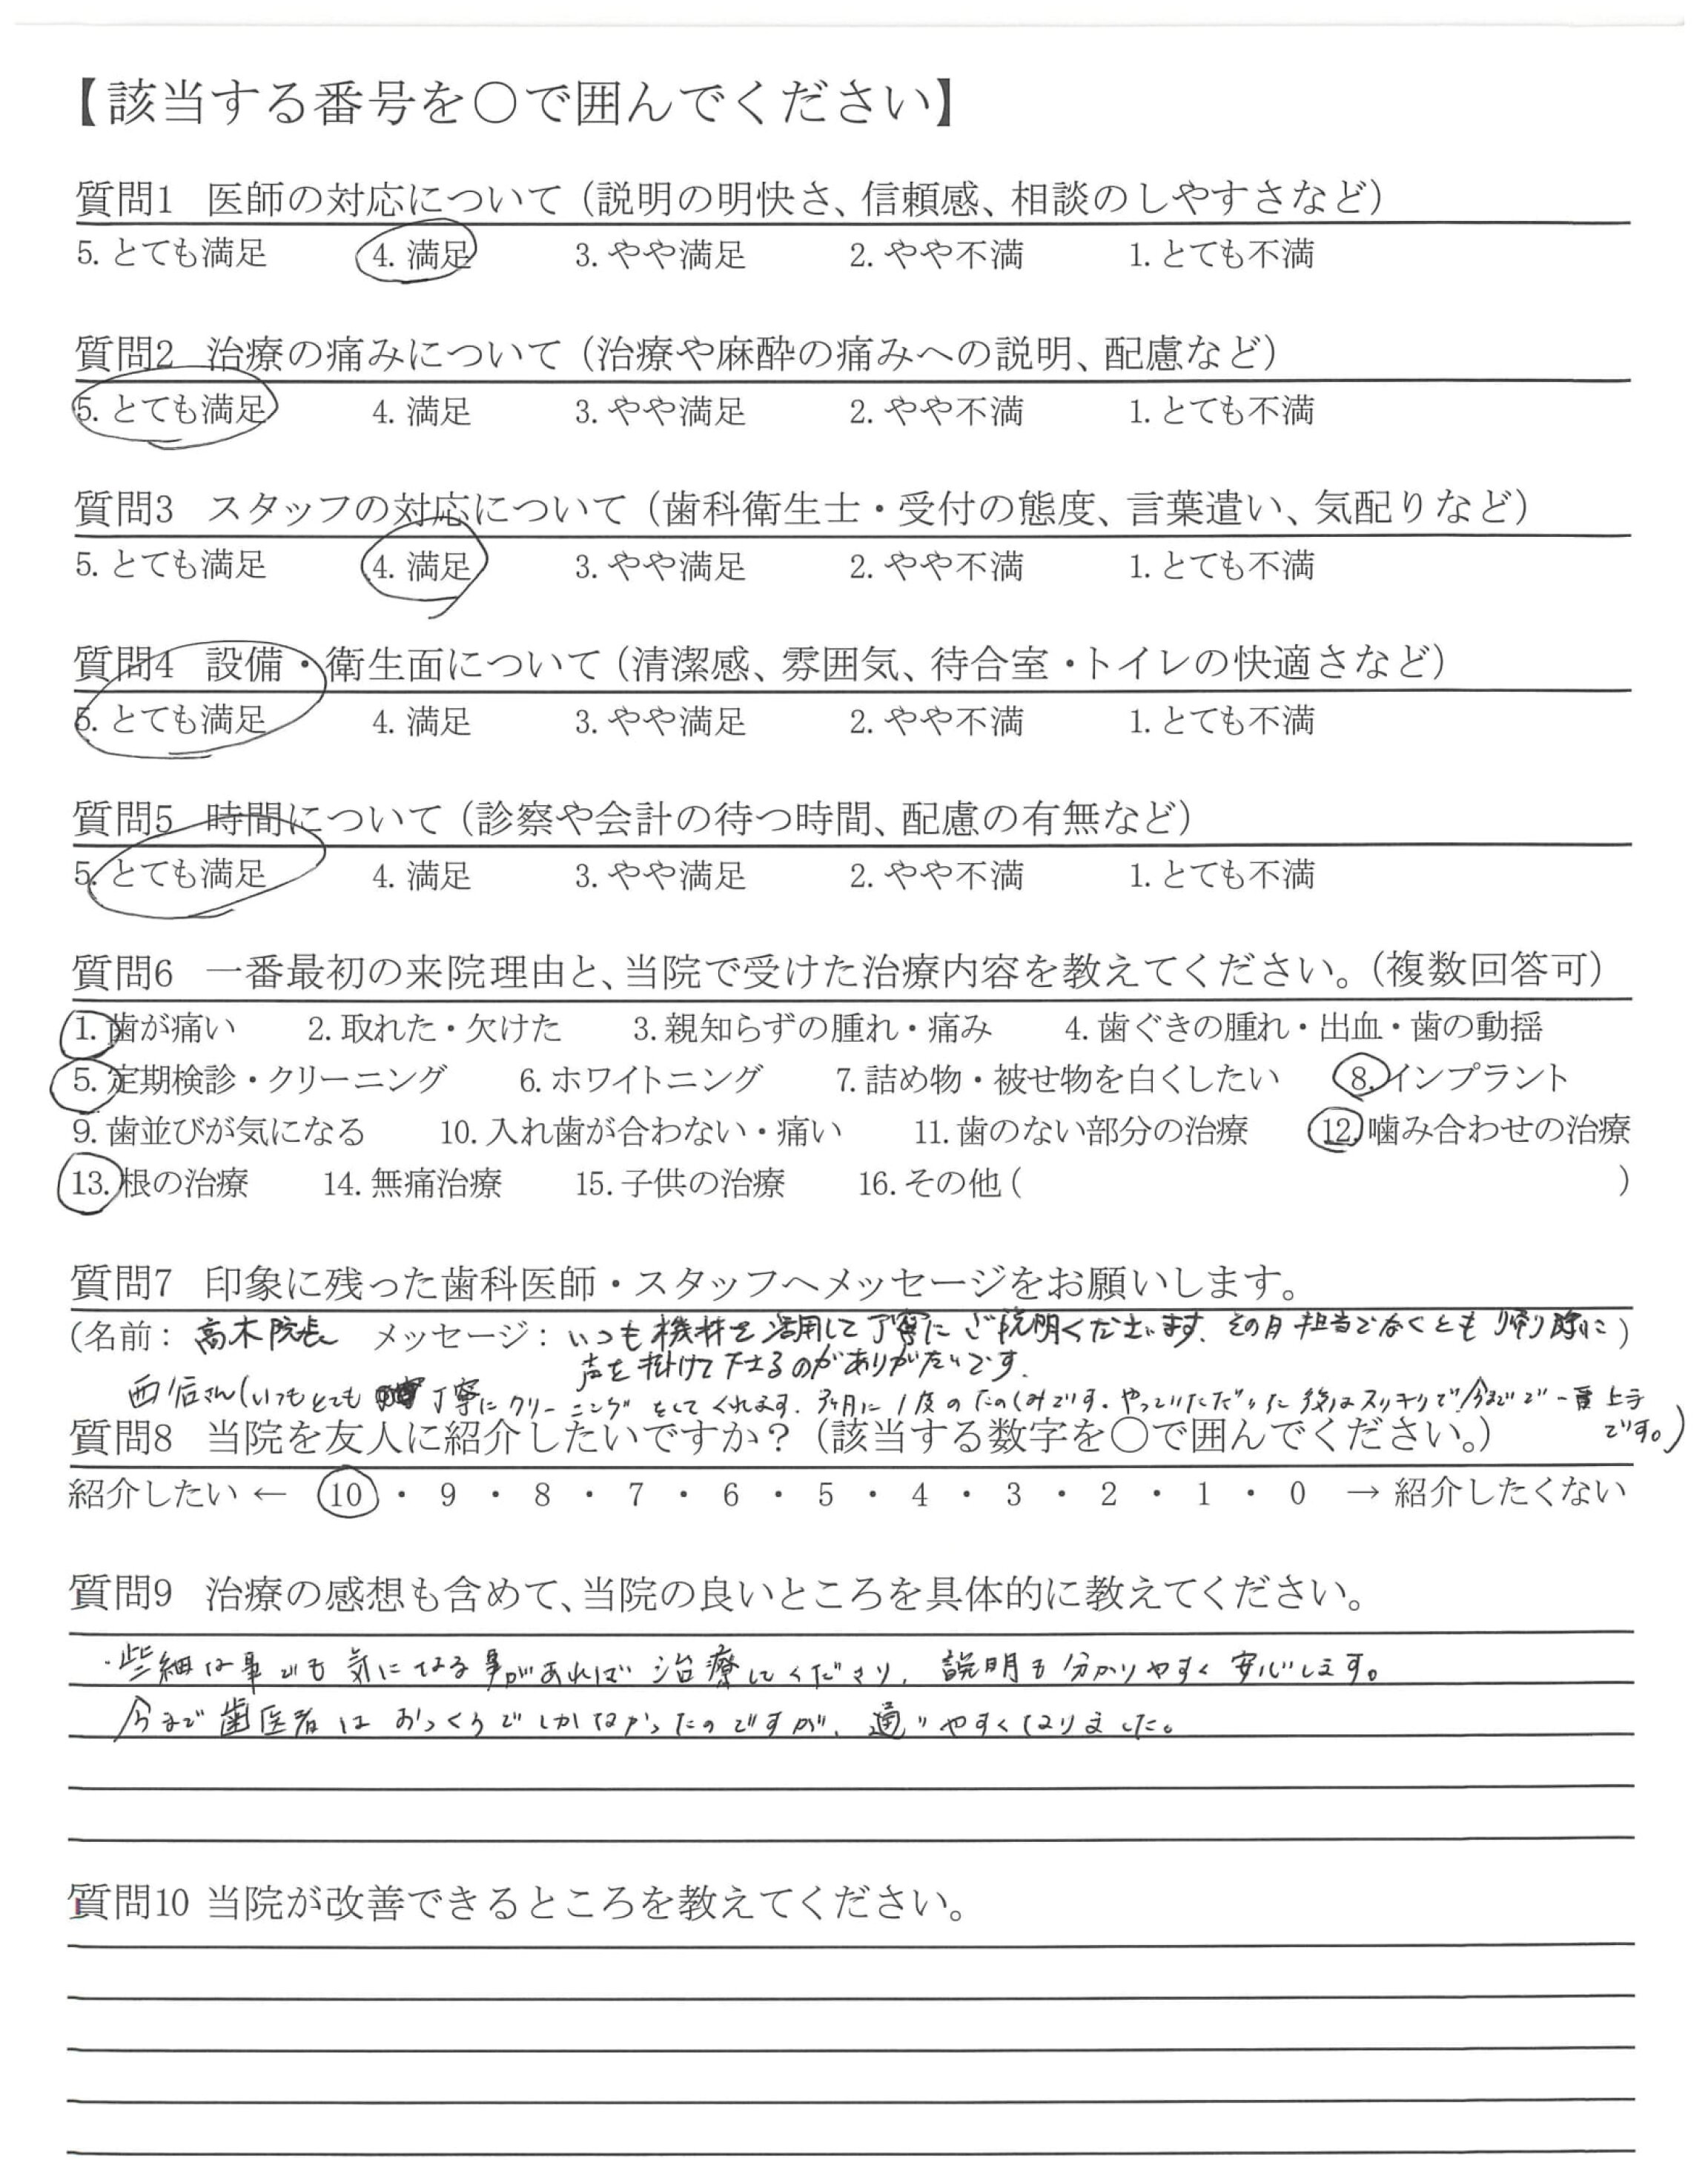 【該当する番号を〇で囲んでください】
質問1 医師の対応について（説明の明快さ、信頼感、相談のしやすさなど）
5. とても満足 4. 満足 3. やや満足 2. やや不満 1. とても不満
質問2 治療の痛みについて（治療や麻酔の痛みへの説明、配慮など）
5. とても満足 4. 満足 3. やや満足 2. やや不満 1. とても不満
質問3 スタッフの対応について（歯科衛生士・受付の態度、言葉遣い、気配りなど）
5. とても満足 4. 満足 3. やや満足 2. やや不満 1. とても不満
質問4 設備・衛生面について（清潔感、雰囲気、待合室・トイレの快適さなど）
5. とても満足 4. 満足 3. やや満足 2. やや不満 1. とても不満
質問5 時間について（診察や会計の待つ時間、配慮の有無など）
5. とても満足 4. 満足 3. やや満足 2. やや不満 1. とても不満
質問6 一番最初の来院理由と、当院で受けた治療内容を教えてください。（複数回答可）
1. 歯が痛い 2. 取れた・欠けた 3. 親知らずの腫れ・痛み 4. 歯ぐきの腫れ・出血・歯の動揺
5. 定期検診・クリーニング 6. ホワイトニング 7. 詰め物・被せ物を白くしたい 8. インプラント
9. 歯並びが気になる 10. 入れ歯が合わない・痛い 11. 歯のない部分の治療 12. 噛み合わせの治療
13. 根の治療 14. 無痛治療 15. 子供の治療 16. その他（ ）
質問7 印象に残った歯科医師・スタッフへメッセージをお願いします。
（名前： 高木院長 メッセージ： いつも機材を活用して丁寧にご説明くださいます。その日担当でなくとも帰り際に）
声を掛けて下さるのがありがたいです。
西 さん（いつもとても 丁寧にクリーニングをしてくれます。 月に1度のたのしみです。やっていただいた後はスッキリで今までで一番上手
です。）
質問8 当院を友人に紹介したいですか？（該当する数字を〇で囲んでください。）
紹介したい ← 10 ・ 9 ・ 8 ・ 7 ・ 6 ・ 5 ・ 4 ・ 3 ・ 2 ・ 1 ・ 0 → 紹介したくない
質問9 治療の感想も含めて、当院の良いところを具体的に教えてください。
・些細な事でも気になる事があれば治療してくださり、説明も分かりやすく安心します。
今まで歯医者はおっくうでしかなかったのですが、通いやすくなりました。
質問10 当院が改善できるところを教えてください。